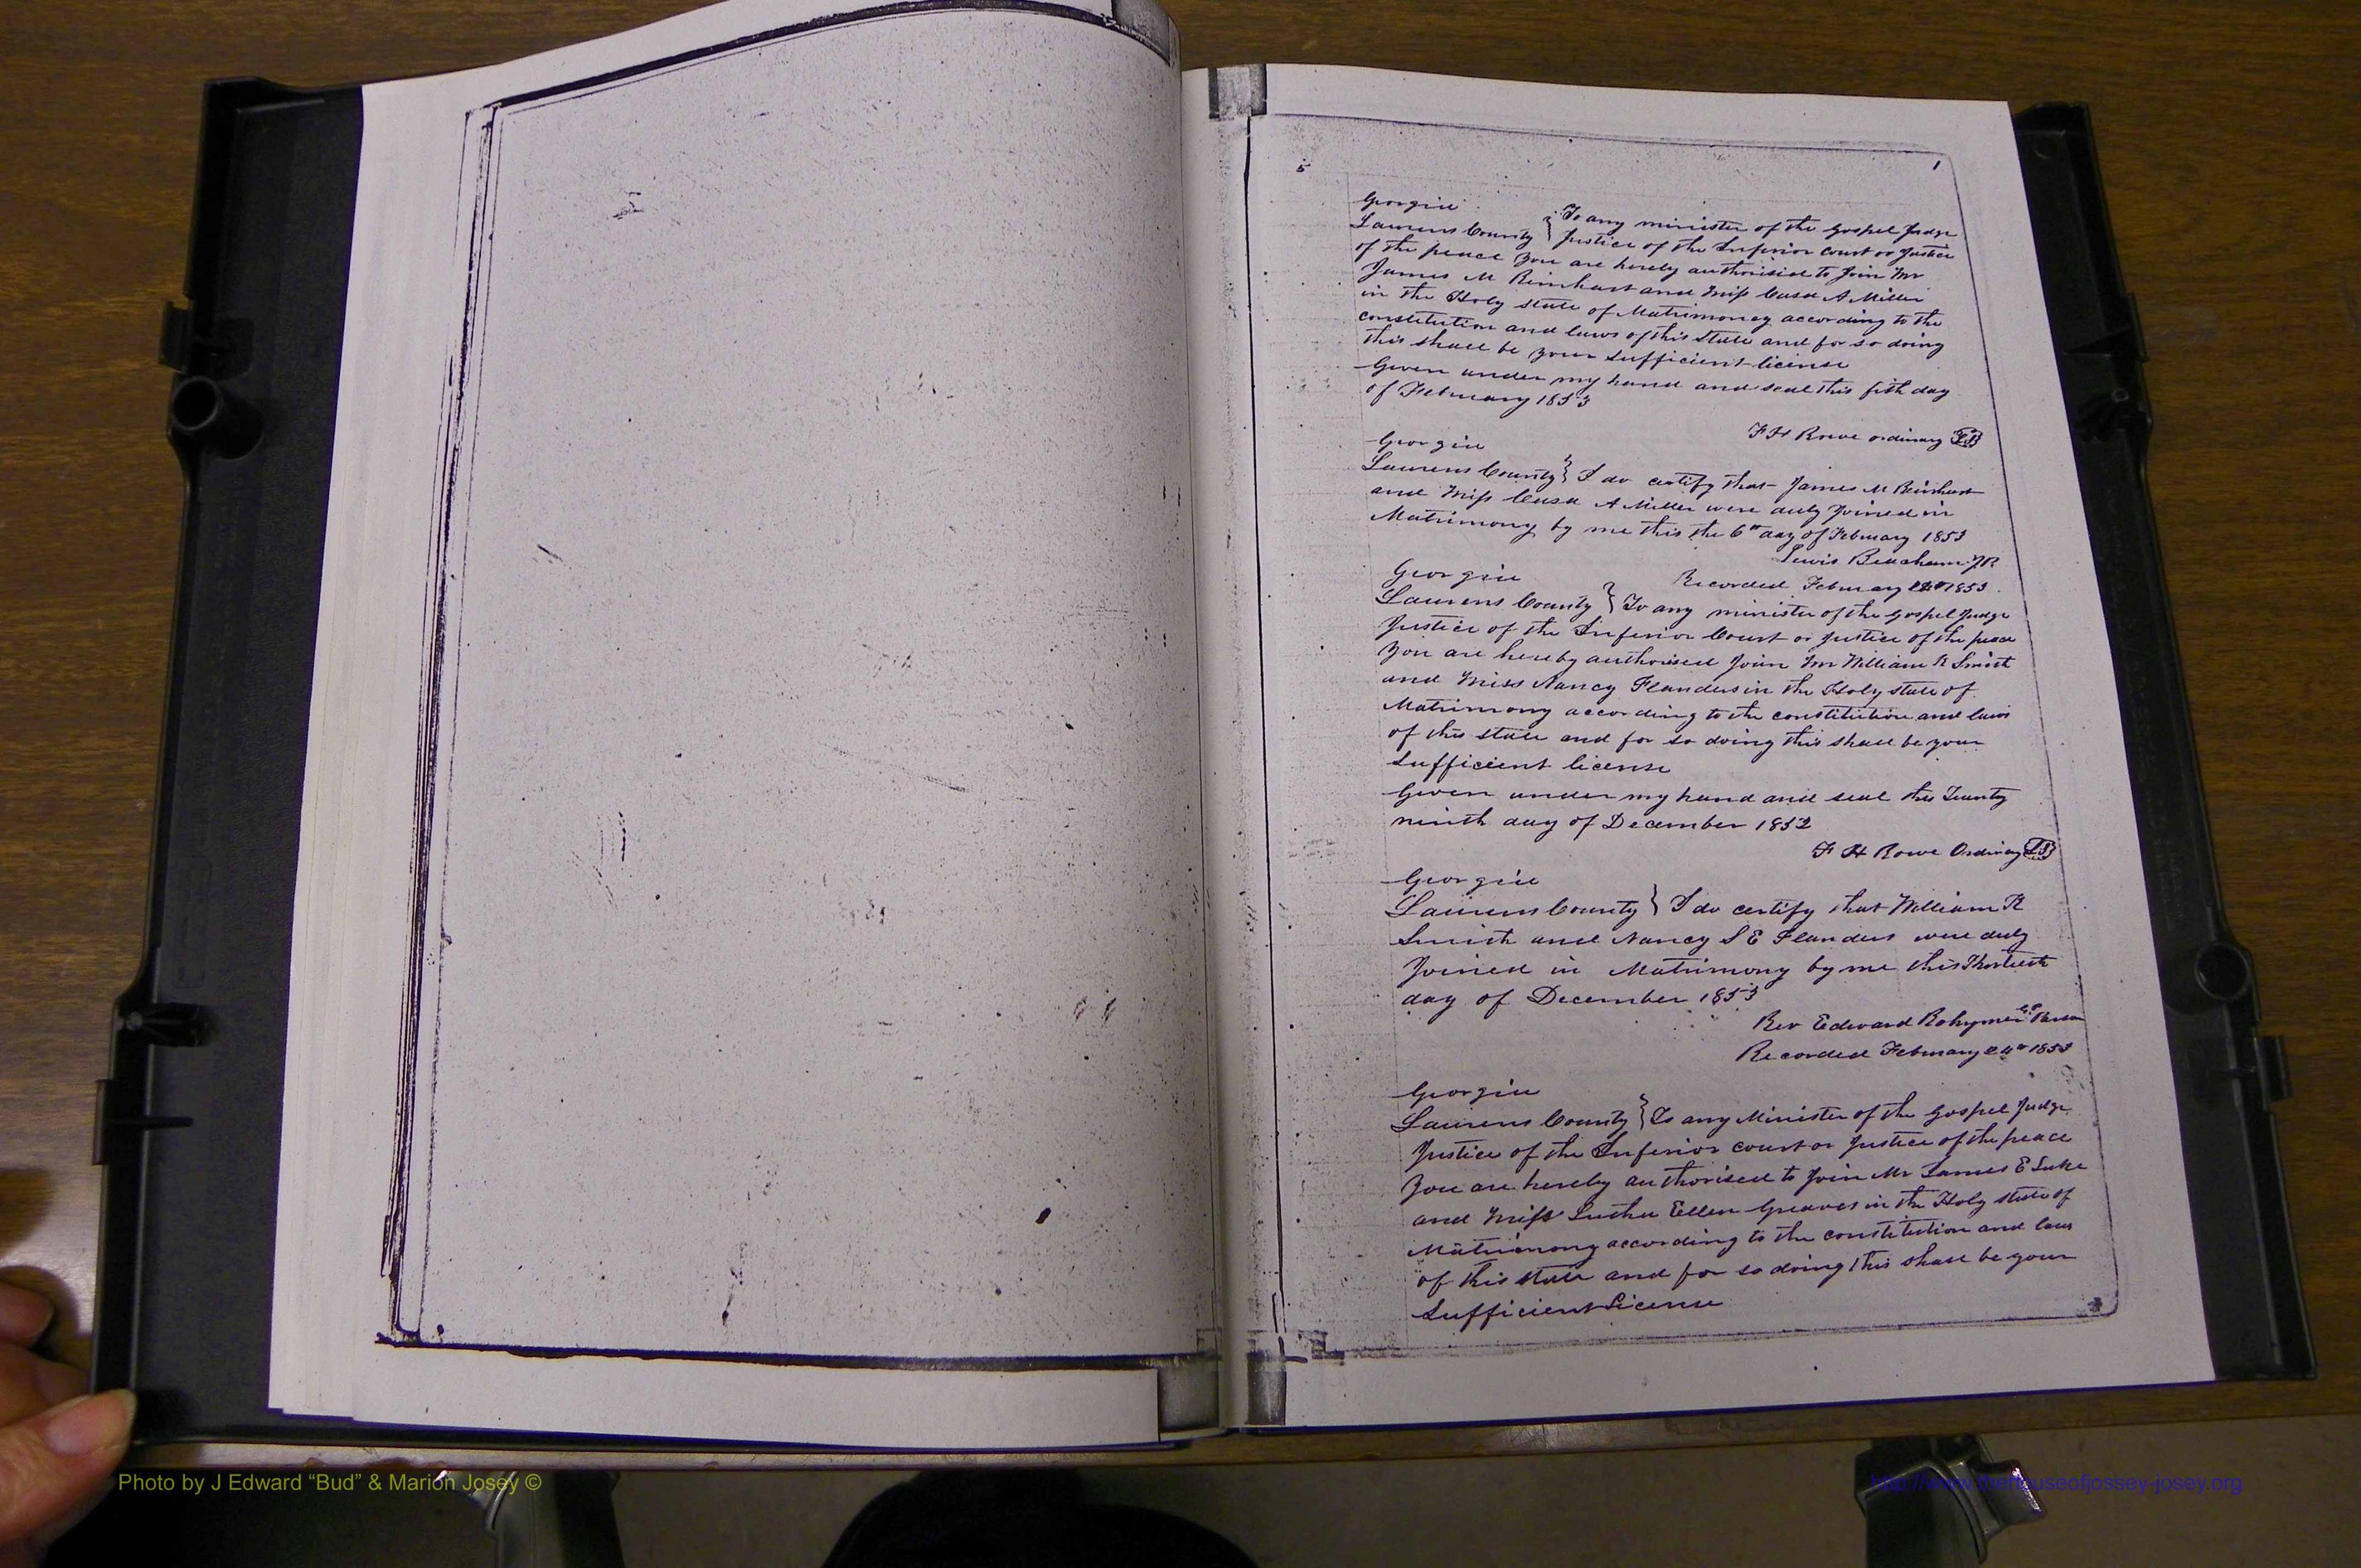 5
1
Georgia
Laurens County } To any minister of the gospel Judge
Justice of the Inferior Court or Justice
of the peace you are hereby authorised to Join Mr
James M Rinehart and Miss A Miller
in the Holy state of Matrimoney according to the
constitution and laws of this state and for so doing
this shall be your Sufficient license
Given under my hand and seal this fifth day
of February 1853
F H Rowe ordinary
Georgia
Laurens County } I do certify that James M Rinehart
and Miss A Miller were duly Joined in
Matrimony by me this the 6th day of February 1853
Lewis Beacham JP
Recorded February 1853
Georgia
Laurens County } To any minister of the gospel Judge
Justice of the Inferior Court or Justice of the peace
you are hereby authorised Join Mr William R Smith
and Miss Nancy Flanders in the Holy state of
Matrimony according to the constitution and laws
of this state and for so doing this shall be your
Sufficient license
Given under my hand and seal this Twenty
ninth day of December 1852
F H Rowe Ordinary LS
Georgia
Laurens County } I do certify that William R
Smith and Nancy S E Flanders were duly
Joined in Matrimony by me this
day of December 1853
Rev Edward
Recorded February 24th 1853
Georgia
Laurens County } To any Minister of the Gospel Judge
Justice of the Inferior court or Justice of the peace
you are hereby authorised to Join Mr James E Luke
and Miss Ellen Greaves in the Holy state of
Matrimony according to the constitution and laws
of this state and for so doing this shall be your
Sufficient License
Photo by J Edward “Bud” & Marion Josey ©
http://www.thehouseofjossey-josey.org